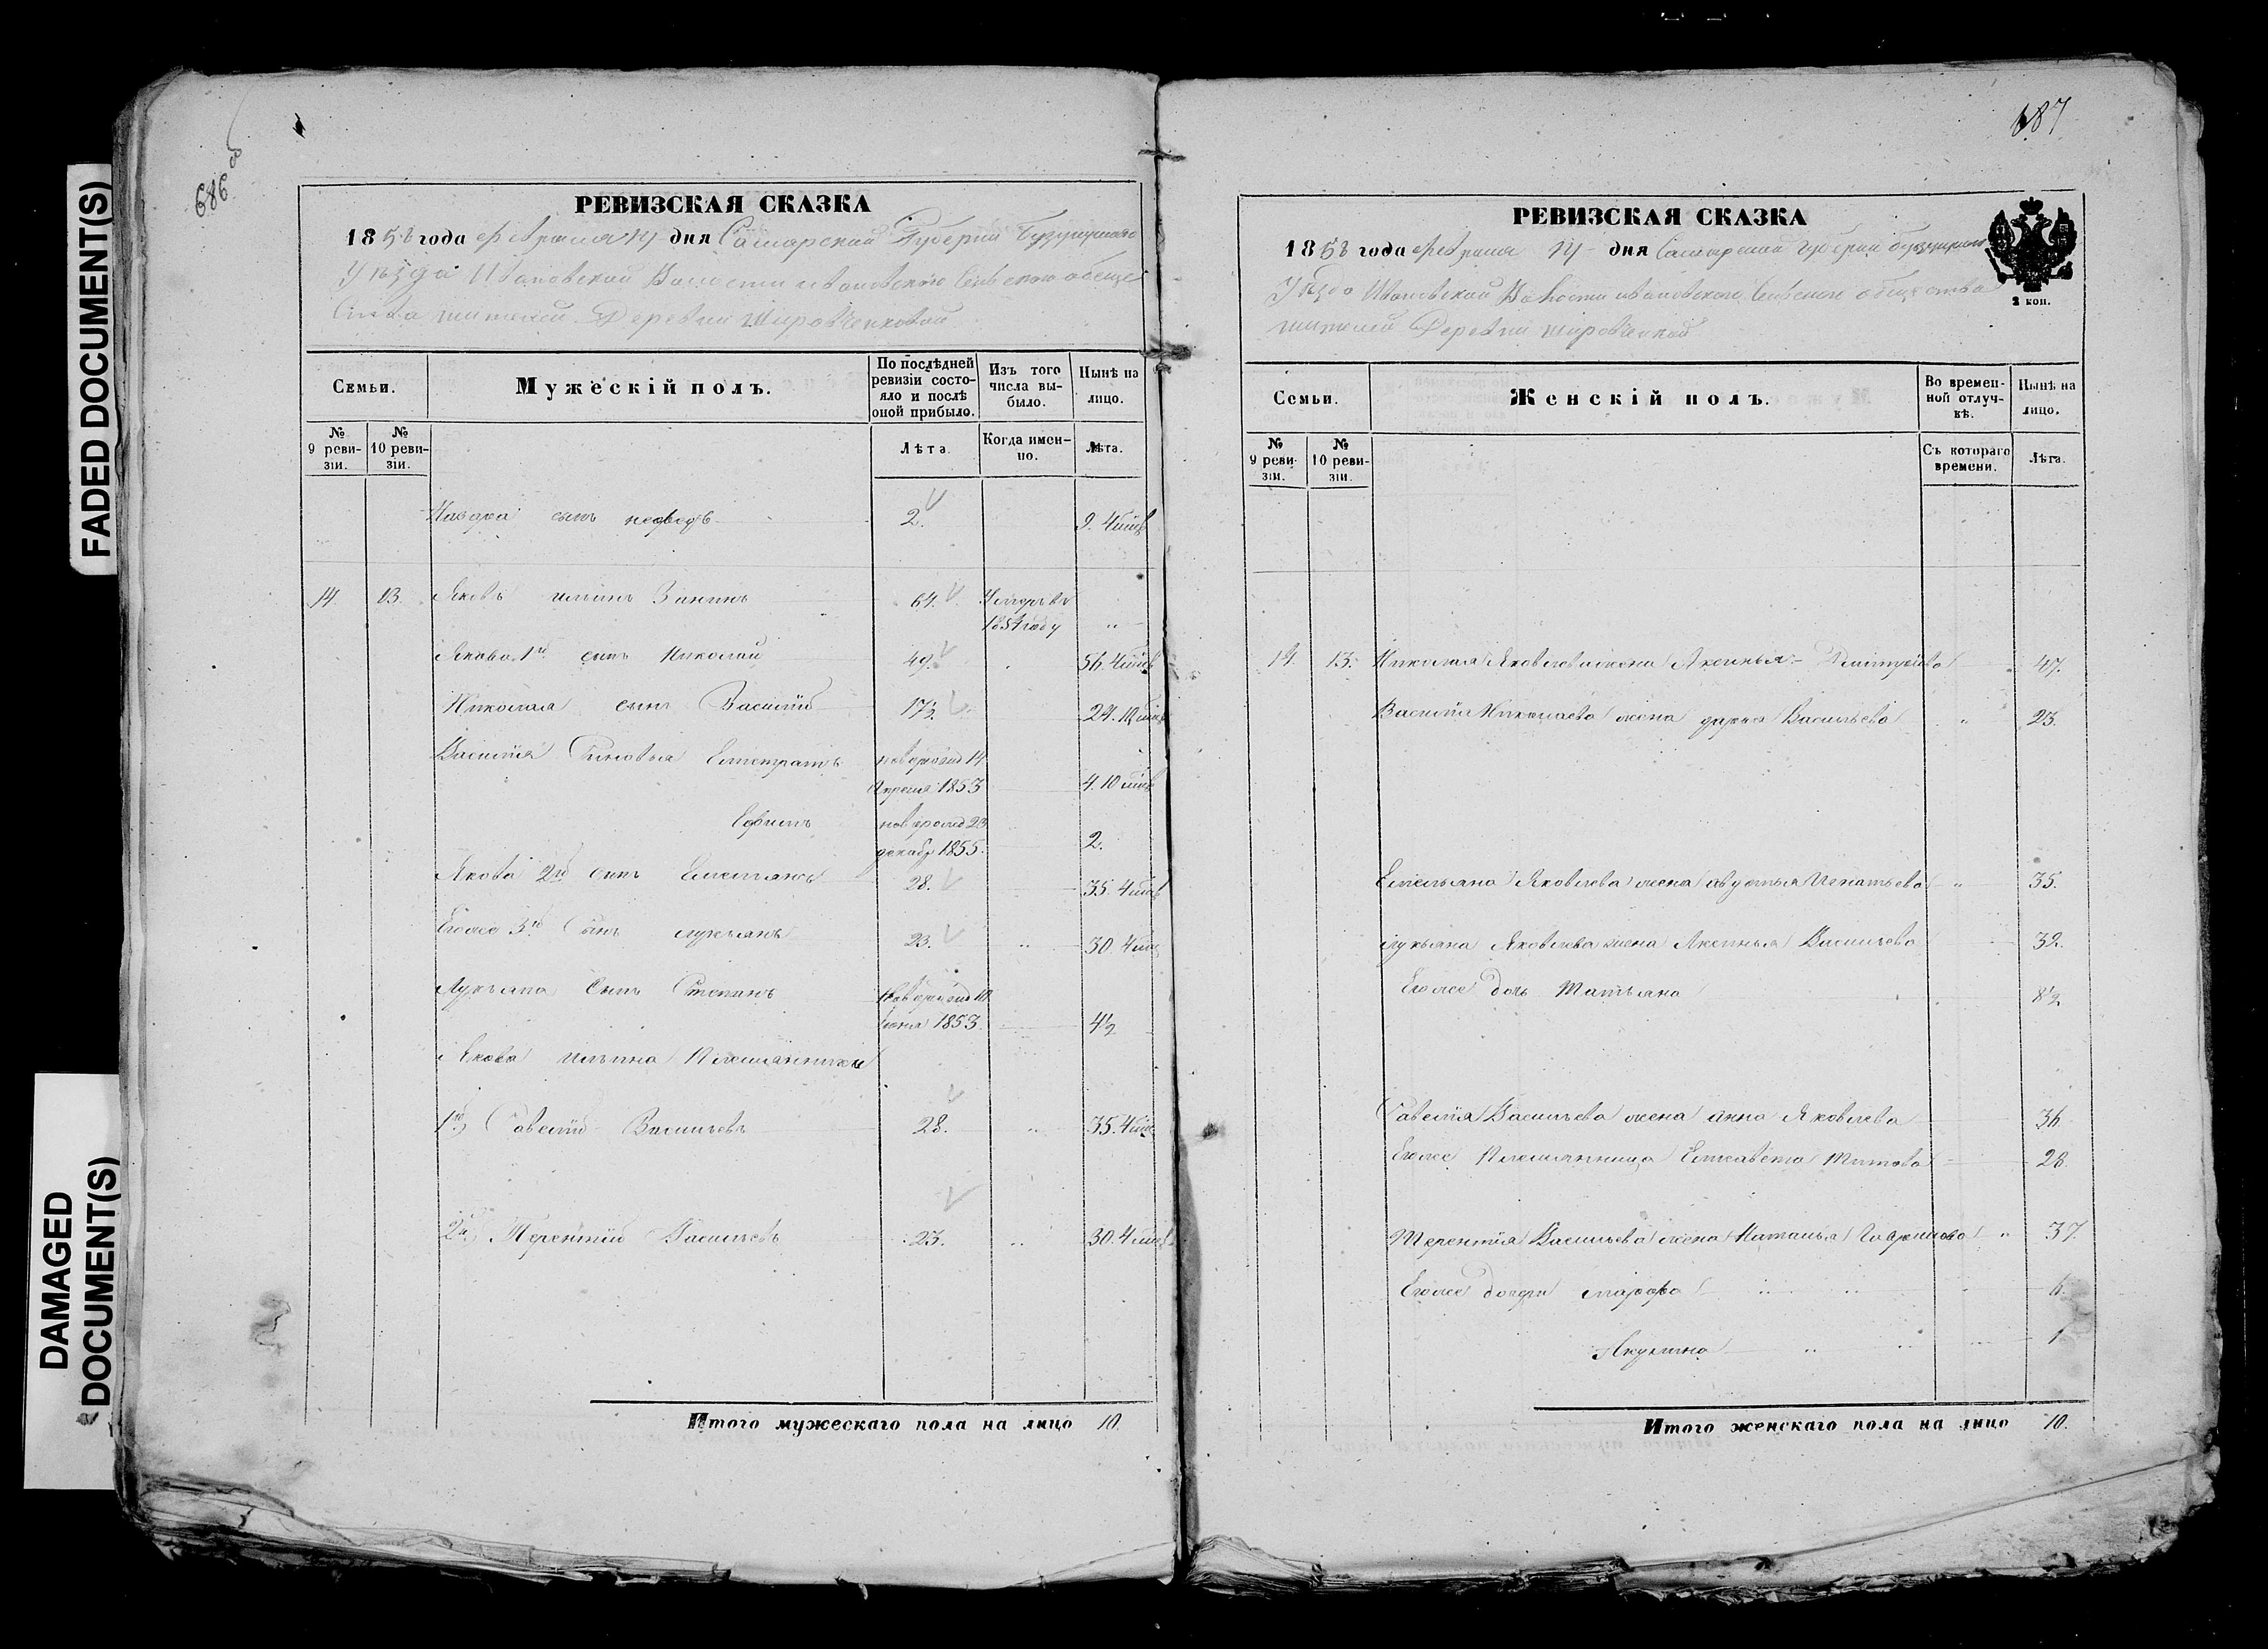 FADED DOCUMENT(S)
DAMAGED
DOCUMENT(S)
686 об
РЕВИЗСКАЯ СКАЗКА
1858 года февраля 14 дня Самарской Губерніи Бузулукскаго
Уѣзда Ивановской Волости Ивановского Сельского обще
ства жителей Деревни
Семьи.
Мужескій полъ.
По послѣдней ревизіи состояло и послѣ оной прибыло.
Изъ того числа выбыло.
Нынѣ на лицо.
№ 9 ревизіи.
№ 10 ревизіи.
Лѣта.
Когда именно.
Лѣта.
сынъ 2. 9. 4 мѣс
14. 13. Яковъ Ильинъ 64. Умеръ въ
1854 году "
Якова 1й сынъ Николай 49. 56. 4 мѣс
Николая сынъ Василій 17½. 24. 10 мѣс
Василія Сыновья Елистратъ новорожд 14
Апреля 1853 4. 10 мѣс
Ефимъ новорожд 23
декабр 1855. 2.
Якова 2й сынъ Емельянъ 28. 35. 4 мѣс
Егоже 3й Сынъ лукьянъ 23. " 30. 4 мѣс
Лукьяна Сынъ Степанъ новорожд 10
1853. 4½
Якова Ильина Племянники
1й) Савелій Васильевъ 28. " 35. 4 мѣс
2й) Терентій Васильевъ 23. " 30. 4 мѣс
Итого мужескаго пола на лицо 10.
687
РЕВИЗСКАЯ СКАЗКА
1858 года февраля 14 дня Самарской губерніи бузулукскаго
Уѣзда Ивановской Волости ивановского Сельского общества
жителей Деревни
2 коп.
Семьи.
Женскій полъ.
Во временной отлучкѣ.
Нынѣ на лицо.
№ 9 ревизіи.
№ 10 ревизіи.
Съ котораго времени.
Лѣта.
14. 13. Николая Яковлева жена Аксинья 47.
Василія Николаева жена дарья Васильева " 23.
Емельяна Яковлева жена авдотья Игнатьева " 35.
лукьяна Яковлева жена Аксинья Васильева 32.
Егоже дочь Татьяна 8½
Савелія Васильева жена анна Яковлева 36.
Егоже Племянница Елисавета Титова 28.
Терентія Васильева жена Наталья Гаврилова " 37.
Егоже дочери марфа 6.
Акулина 1
Итого женскаго пола на лицо 10.